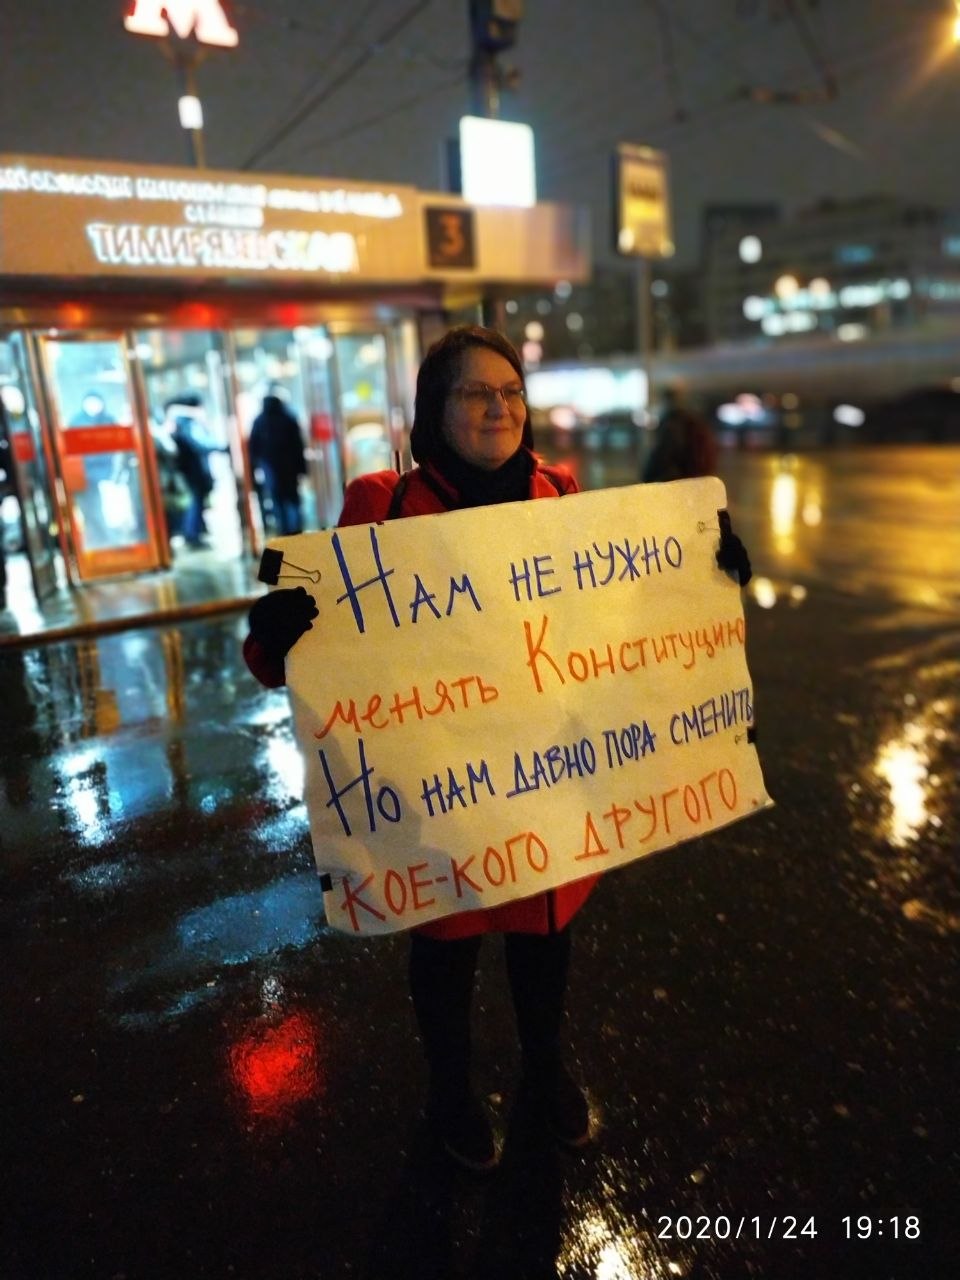 М
СТАНЦИЯ
ТИМИРЯЗЕВСКАЯ
3
Нам не нужно
менять Конституцию
Но нам давно пора сменить
кое-кого другого.
2020/1/24 19:18